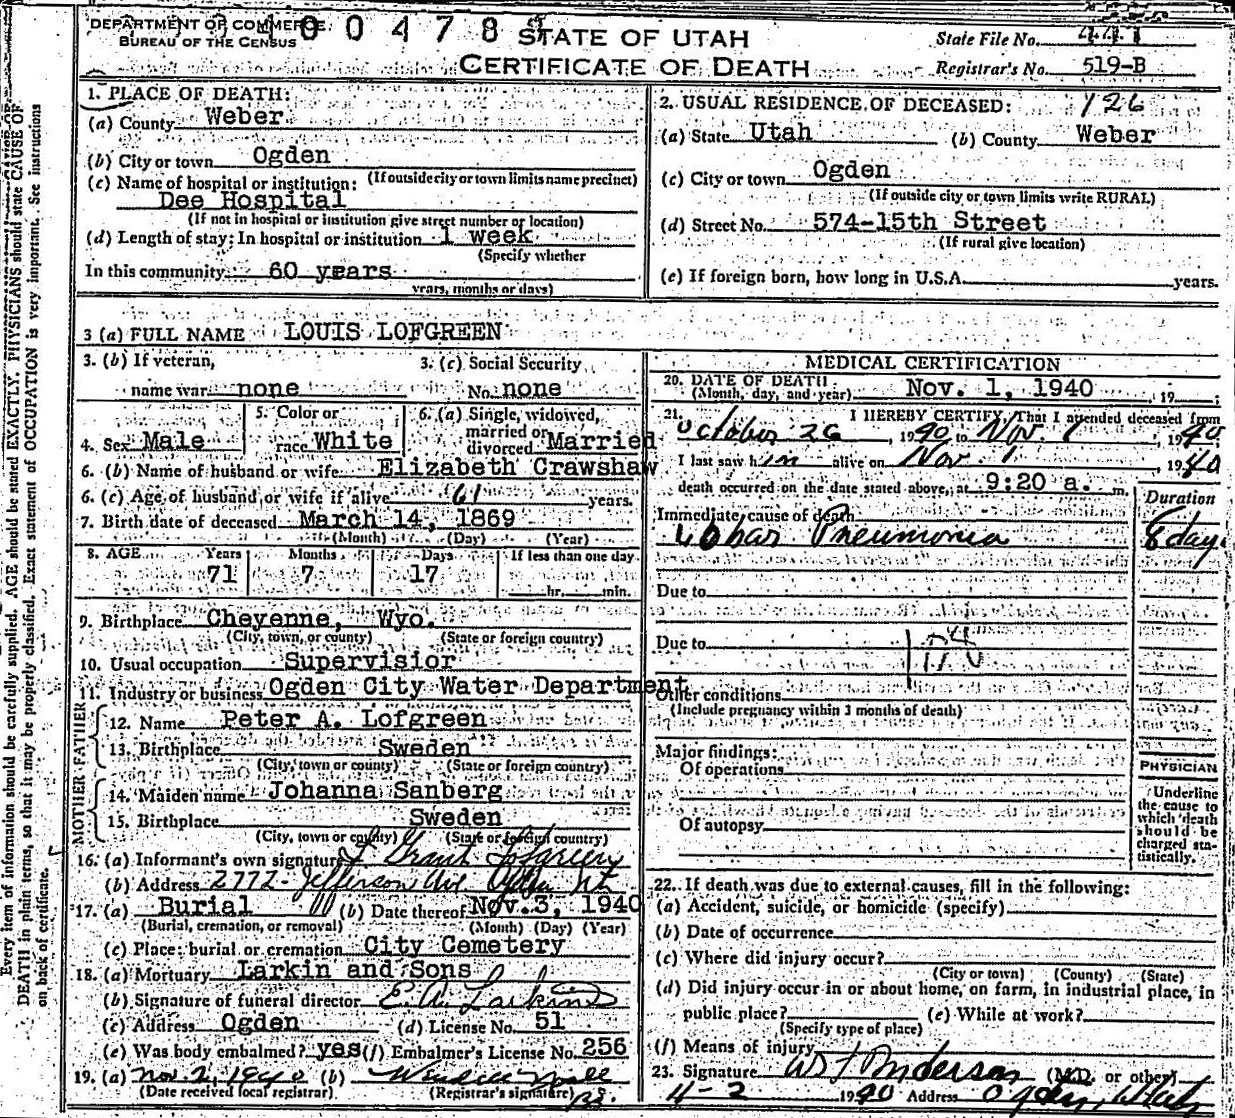 DEPARTMENT OF COMMERCE
BUREAU OF THE CENSUS
400478
STATE OF UTAH
CERTIFICATE OF DEATH
State File No.
Registrar's No. 519-B
1. PLACE OF DEATH:
(a) County Weber
(b) City or town Ogden
(If outside city or town limits name precinct)
(c) Name of hospital or institution:
Dee Hospital
(If not in hospital or institution give street number or location)
(d) Length of stay: In hospital or institution 1 week
(Specify whether
In this community 60 years
years, months or days)
2. USUAL RESIDENCE OF DECEASED: 126
(a) State Utah (b) County Weber
(c) City or town Ogden
(If outside city or town limits write RURAL)
(d) Street No. 574-15th Street
(If rural give location)
(e) If foreign born, how long in U.S.A. years.
3 (a) FULL NAME LOUIS LOFGREEN
3. (b) If veteran,
name war none
3. (c) Social Security
No. none
4. Sex Male
5. Color or
race White
6. (a) Single, widowed,
married or
divorced Married
6. (b) Name of husband or wife Elizabeth Crawshaw
6. (c) Age of husband or wife if alive 61 years.
7. Birth date of deceased March 14, 1869
(Month) (Day) (Year)
8. AGE Years Months Days If less than one day
71 7 17 hr. min.
9. Birthplace Cheyenne, Wyo.
(City, town, or county) (State or foreign country)
10. Usual occupation Supervisior
11. Industry or business Ogden City Water Department
FATHER
12. Name Peter A. Lofgreen
13. Birthplace Sweden
(City, town or county) (State or foreign country)
MOTHER
14. Maiden name Johanna Sanberg
15. Birthplace Sweden
(City, town or county) (State or foreign country)
16. (a) Informant's own signature L Grant Lofgreen
(b) Address 2772- Jefferson Ave Ogden Ut
17. (a) Burial (b) Date thereof Nov.3, 1940
(Burial, cremation, or removal) (Month) (Day) (Year)
(c) Place: burial or cremation City Cemetery
18. (a) Mortuary Larkin and Sons
(b) Signature of funeral director E. A. Larkin
(c) Address Ogden (d) License No. 51
(e) Was body embalmed? yes (f) Embalmer's License No. 256
19. (a) Nov. 2, 1940 (b)
(Date received local registrar) (Registrar's signature)
MEDICAL CERTIFICATION
20. DATE OF DEATH Nov. 1, 1940, 19 ;
(Month, day, and year)
21. I HEREBY CERTIFY, That I attended deceased from
October 26, 1940 to Nov. 1, 1940
I last saw him alive on Nov. 1, 1940
death occurred on the date stated above, at 9:20 a. m.
Immediate cause of death Duration
Lobar Pneumonia 8 day.
Due to
Due to
Other conditions
(Include pregnancy within 3 months of death)
Major findings:
Of operations
Of autopsy
PHYSICIAN
Underline
the cause to
which death
should be
charged sta-
tistically.
22. If death was due to external causes, fill in the following:
(a) Accident, suicide, or homicide (specify)
(b) Date of occurrence
(c) Where did injury occur?
(City or town) (County) (State)
(d) Did injury occur in or about home, on farm, in industrial place, in
public place? (e) While at work?
(Specify type of place)
(f) Means of injury
23. Signature Anderson (M.D. or other)
11-2 1940 Address Ogden, Utah
Every item of information should be carefully supplied. AGE should be stated EXACTLY. PHYSICIANS should state CAUSE OF
DEATH in plain terms, so that it may be properly classified. Exact statement of OCCUPATION is very important. See instructions
on back of certificate.